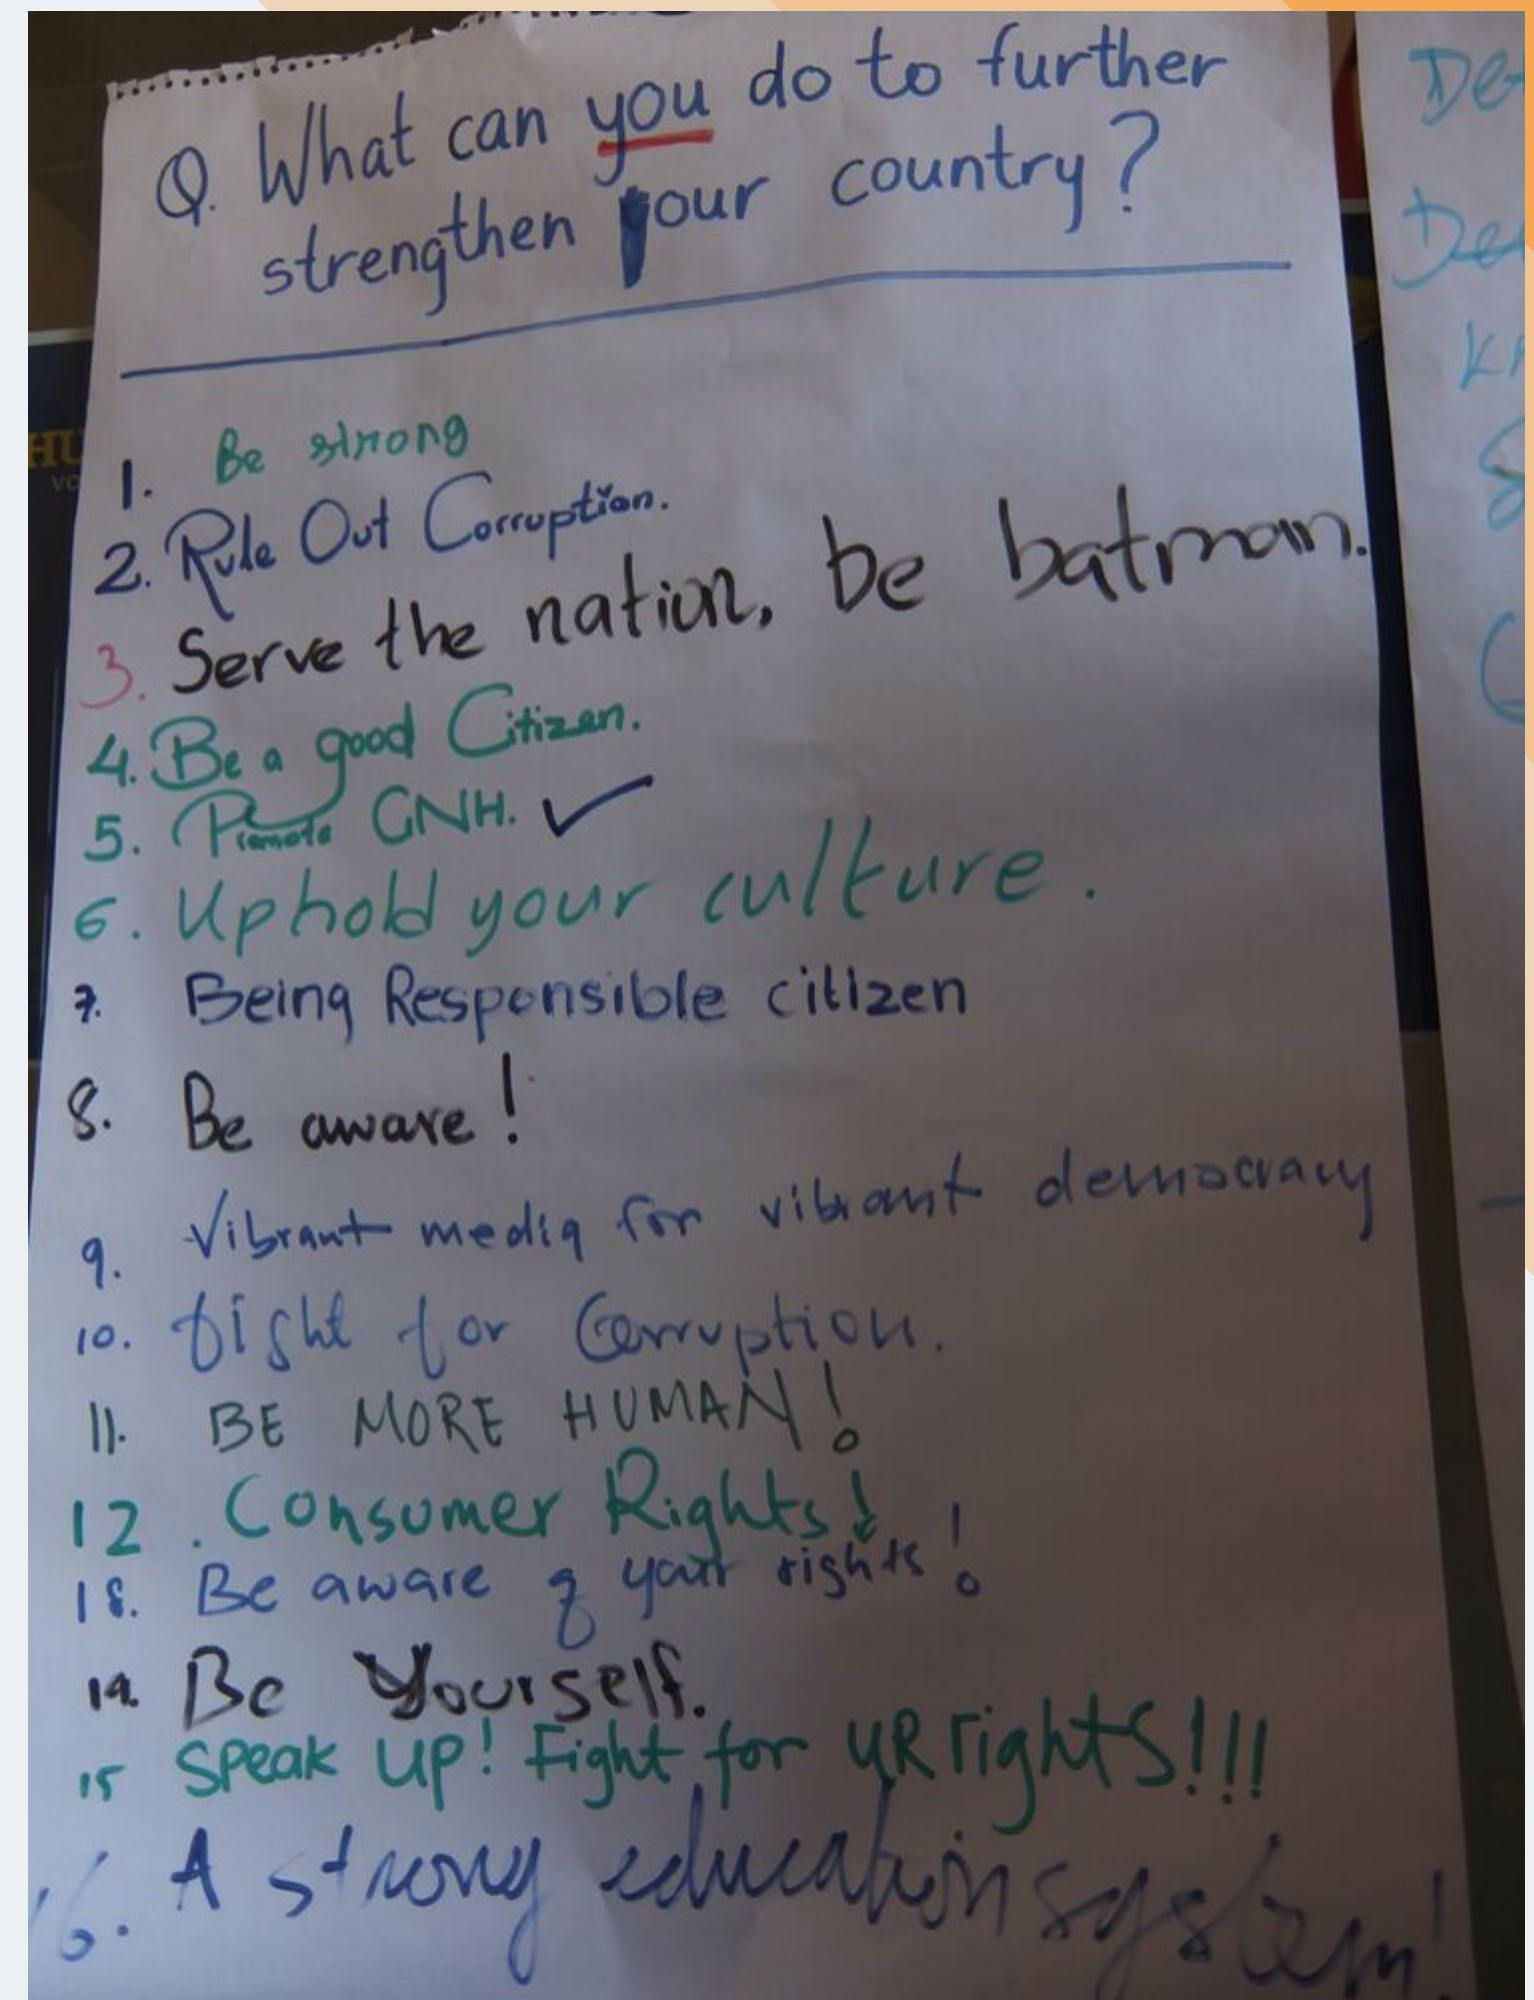 Q. What can you do to further
strengthen your country?
1. Be strong
2. Rule Out Corruption.
3. Serve the nation, be batman.
4. Be a good Citizen.
5. Promote GNH. ✓
6. Uphold your culture.
7. Being Responsible citizen
8. Be aware!
9. Vibrant media for vibrant democracy
10. fight for Corruption.
11. BE MORE HUMAN!
12. Consumer Rights!
13. Be aware of your rights!
14. Be Yourself.
15 Speak UP! Fight for UR rights!!!
16. A strong education system!
HU
VO
De
De
Kn